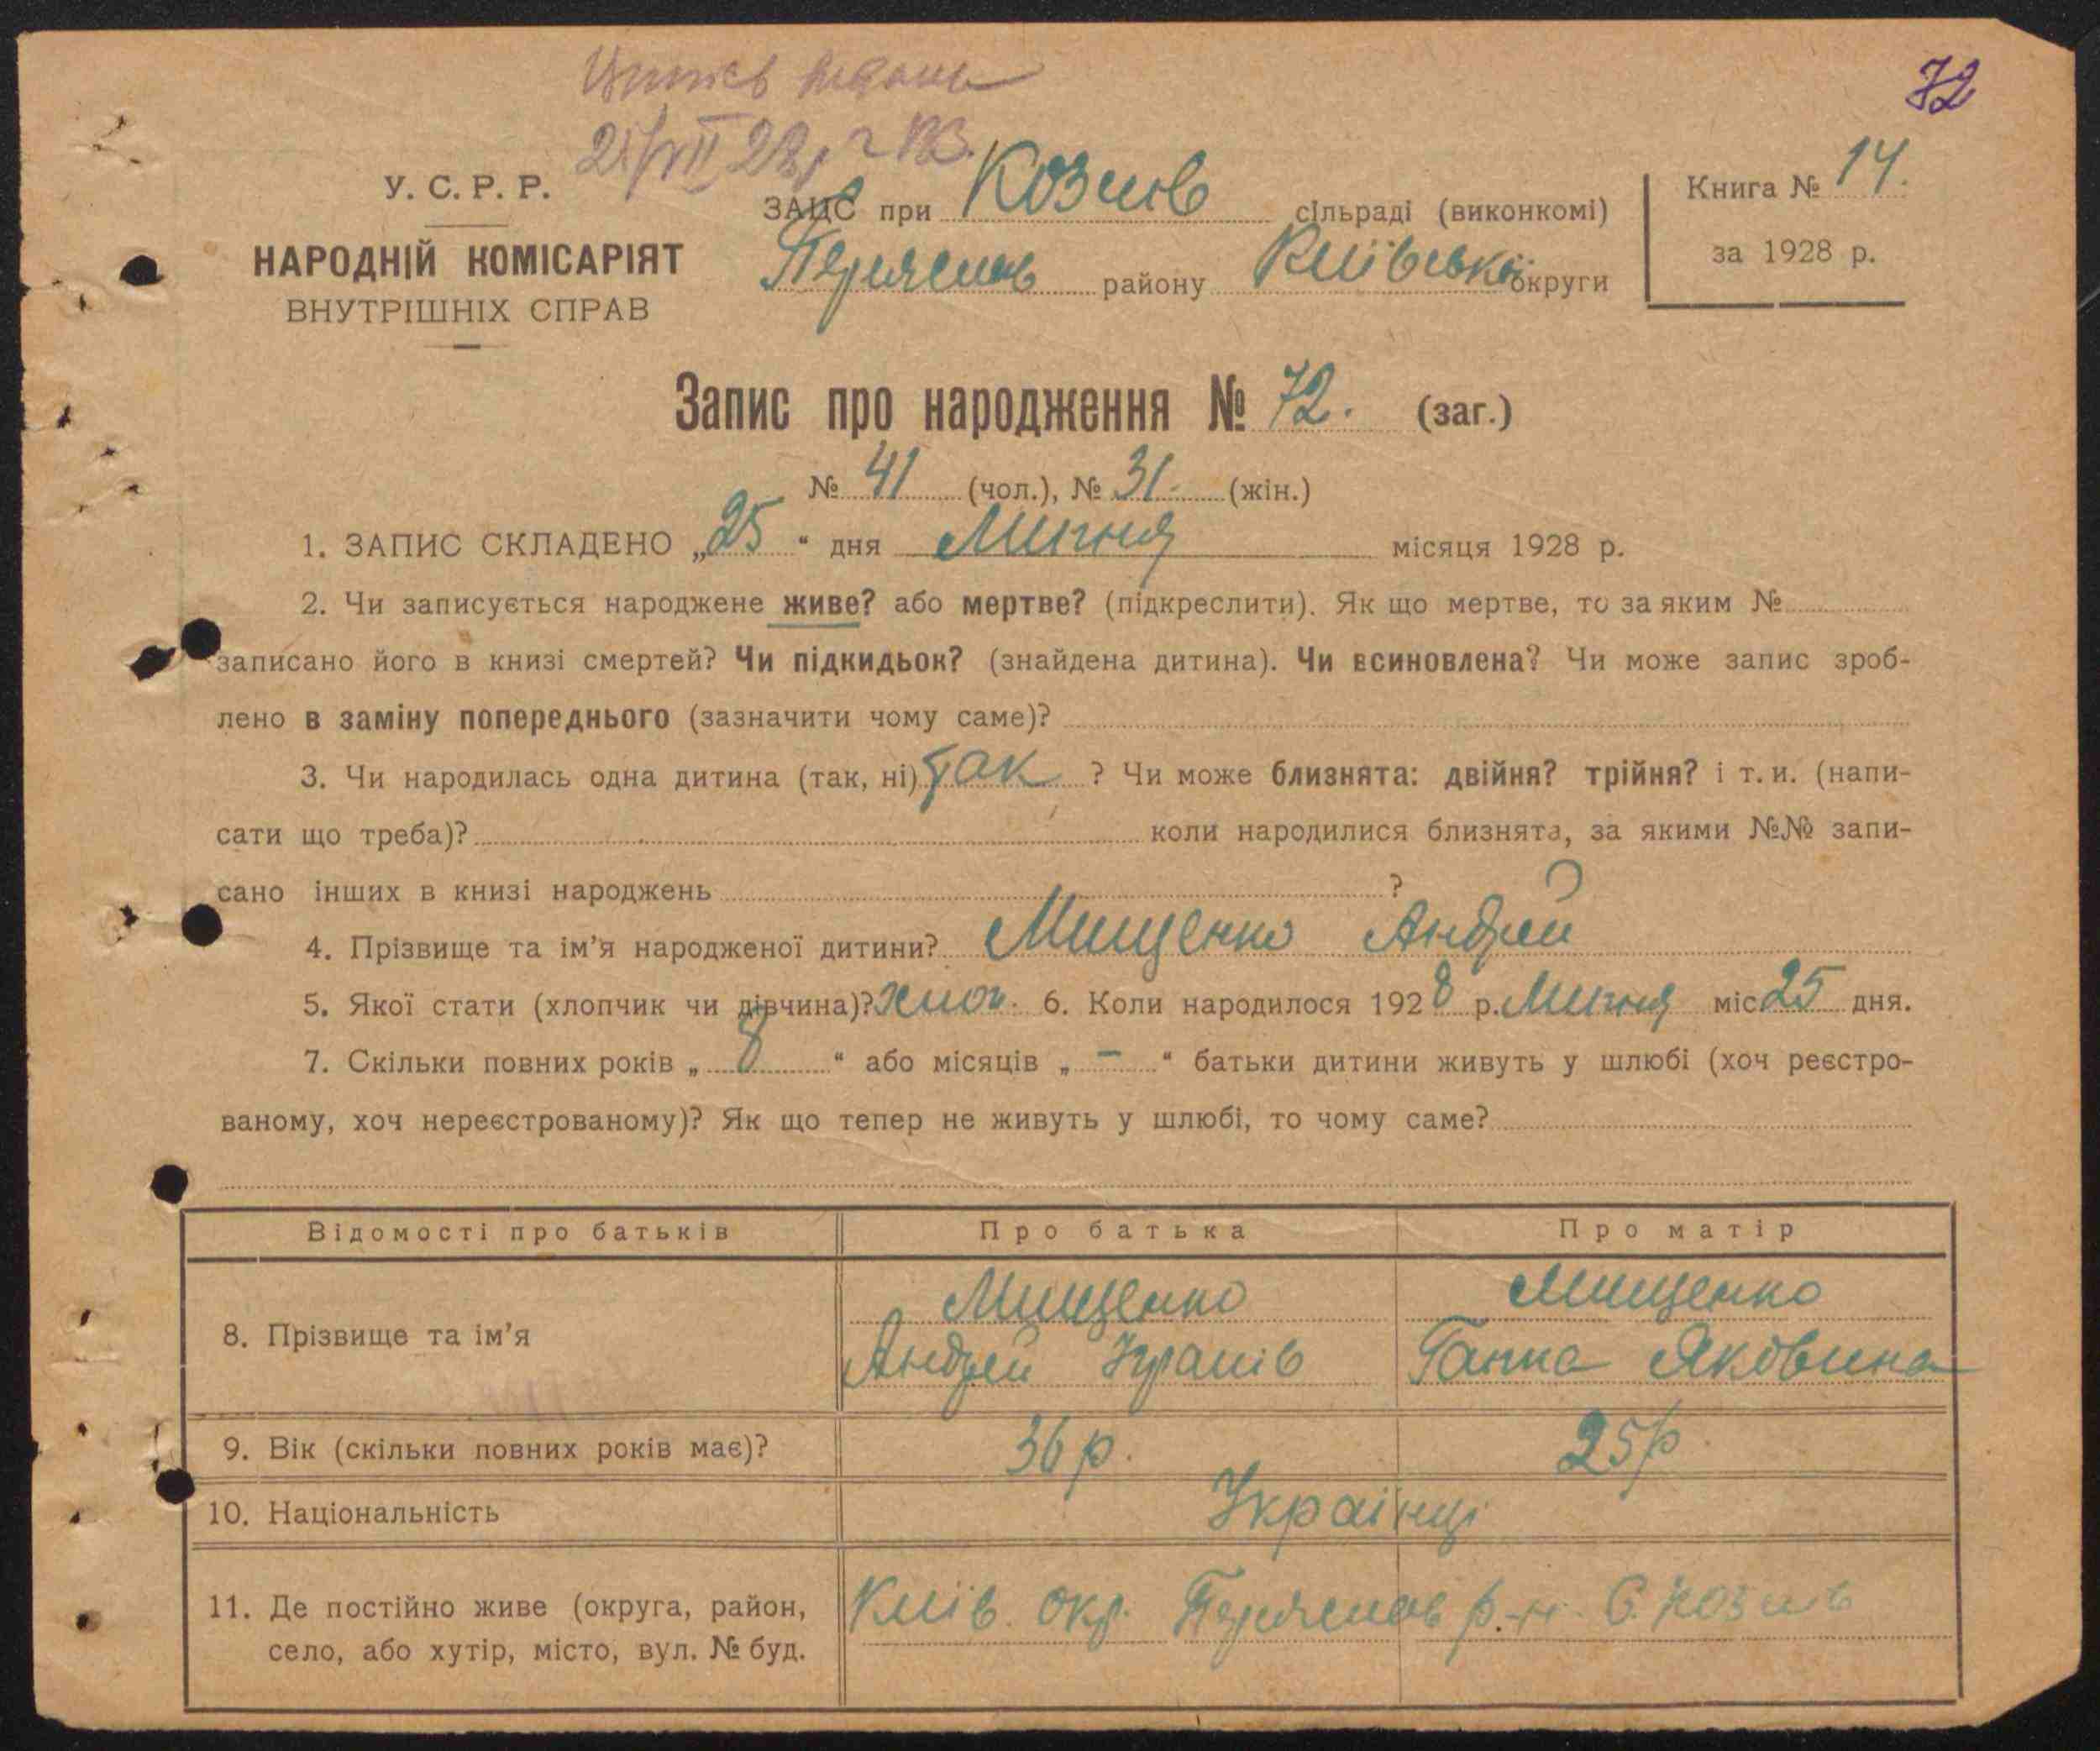 72
У. С. Р. Р.
НАРОДНІЙ КОМІСАРІЯТ
ВНУТРІШНІХ СПРАВ
ЗАЦС при Козлів сільраді (виконкомі)
Переяслав району Київської округи
Книга № 14.
за 1928 р.
Запис про народження № 72. (заг.)
№ 41 (чол.), № 31. (жін.)
1. ЗАПИС СКЛАДЕНО „25“ дня Липня місяця 1928 р.
2. Чи записується народжене живе? або мертве? (підкреслити). Як що мертве, то за яким №
записано його в книзі смертей? Чи підкидьок? (знайдена дитина). Чи всиновлена? Чи може запис зроб-
лено в заміну попереднього (зазначити чому саме)?
3. Чи народилась одна дитина (так, ні) так ? Чи може близнята: двійня? трійня? і т. и. (напи-
сати що треба)? коли народилися близнята, за якими №№ запи-
сано інших в книзі народжень ?
4. Прізвище та ім’я народженої дитини? Мищенко Андрей
5. Якої стати (хлопчик чи дівчина)? хлоп. 6. Коли народилося 1928 р. Липня міс 25 дня.
7. Скільки повних років „8“ або місяців „–“ батьки дитини живуть у шлюбі (хоч реєстро-
ваному, хоч нереєстрованому)? Як що тепер не живуть у шлюбі, то чому саме?
Відомості про батьків Про батька Про матір
8. Прізвище та ім’я
Мищенко
Андрей
Мищенко
Ганна Яковина
9. Вік (скільки повних років має)? 36 р. 25 р
10. Національність Українці
11. Де постійно живе (округа, район,
село, або хутір, місто, вул. № буд.
Київ. окр. Переяслав р-н. С. Козлів